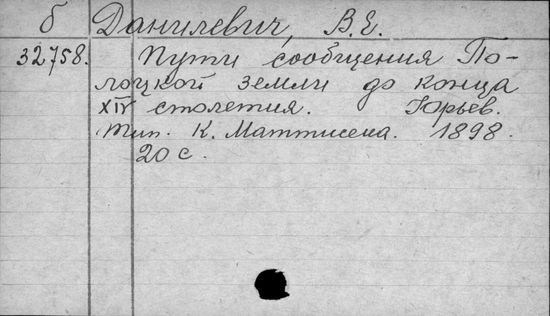 б Данилевич, В.Е.
32758. Пути сообщения По-
лоцкой земли до конца
XIV столетия. Юрьев.
тип. К. Маттисена. 1898.
20 с.